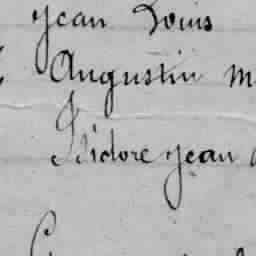 Jean Louis
Augustin
Isidore Jean